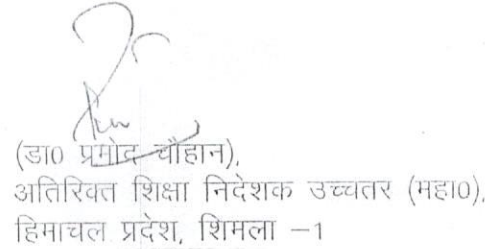 (डा0 प्रमोद चौहान),
अतिरिक्त शिक्षा निदेशक उच्चतर (महा0),
हिमाचल प्रदेश, शिमला –1